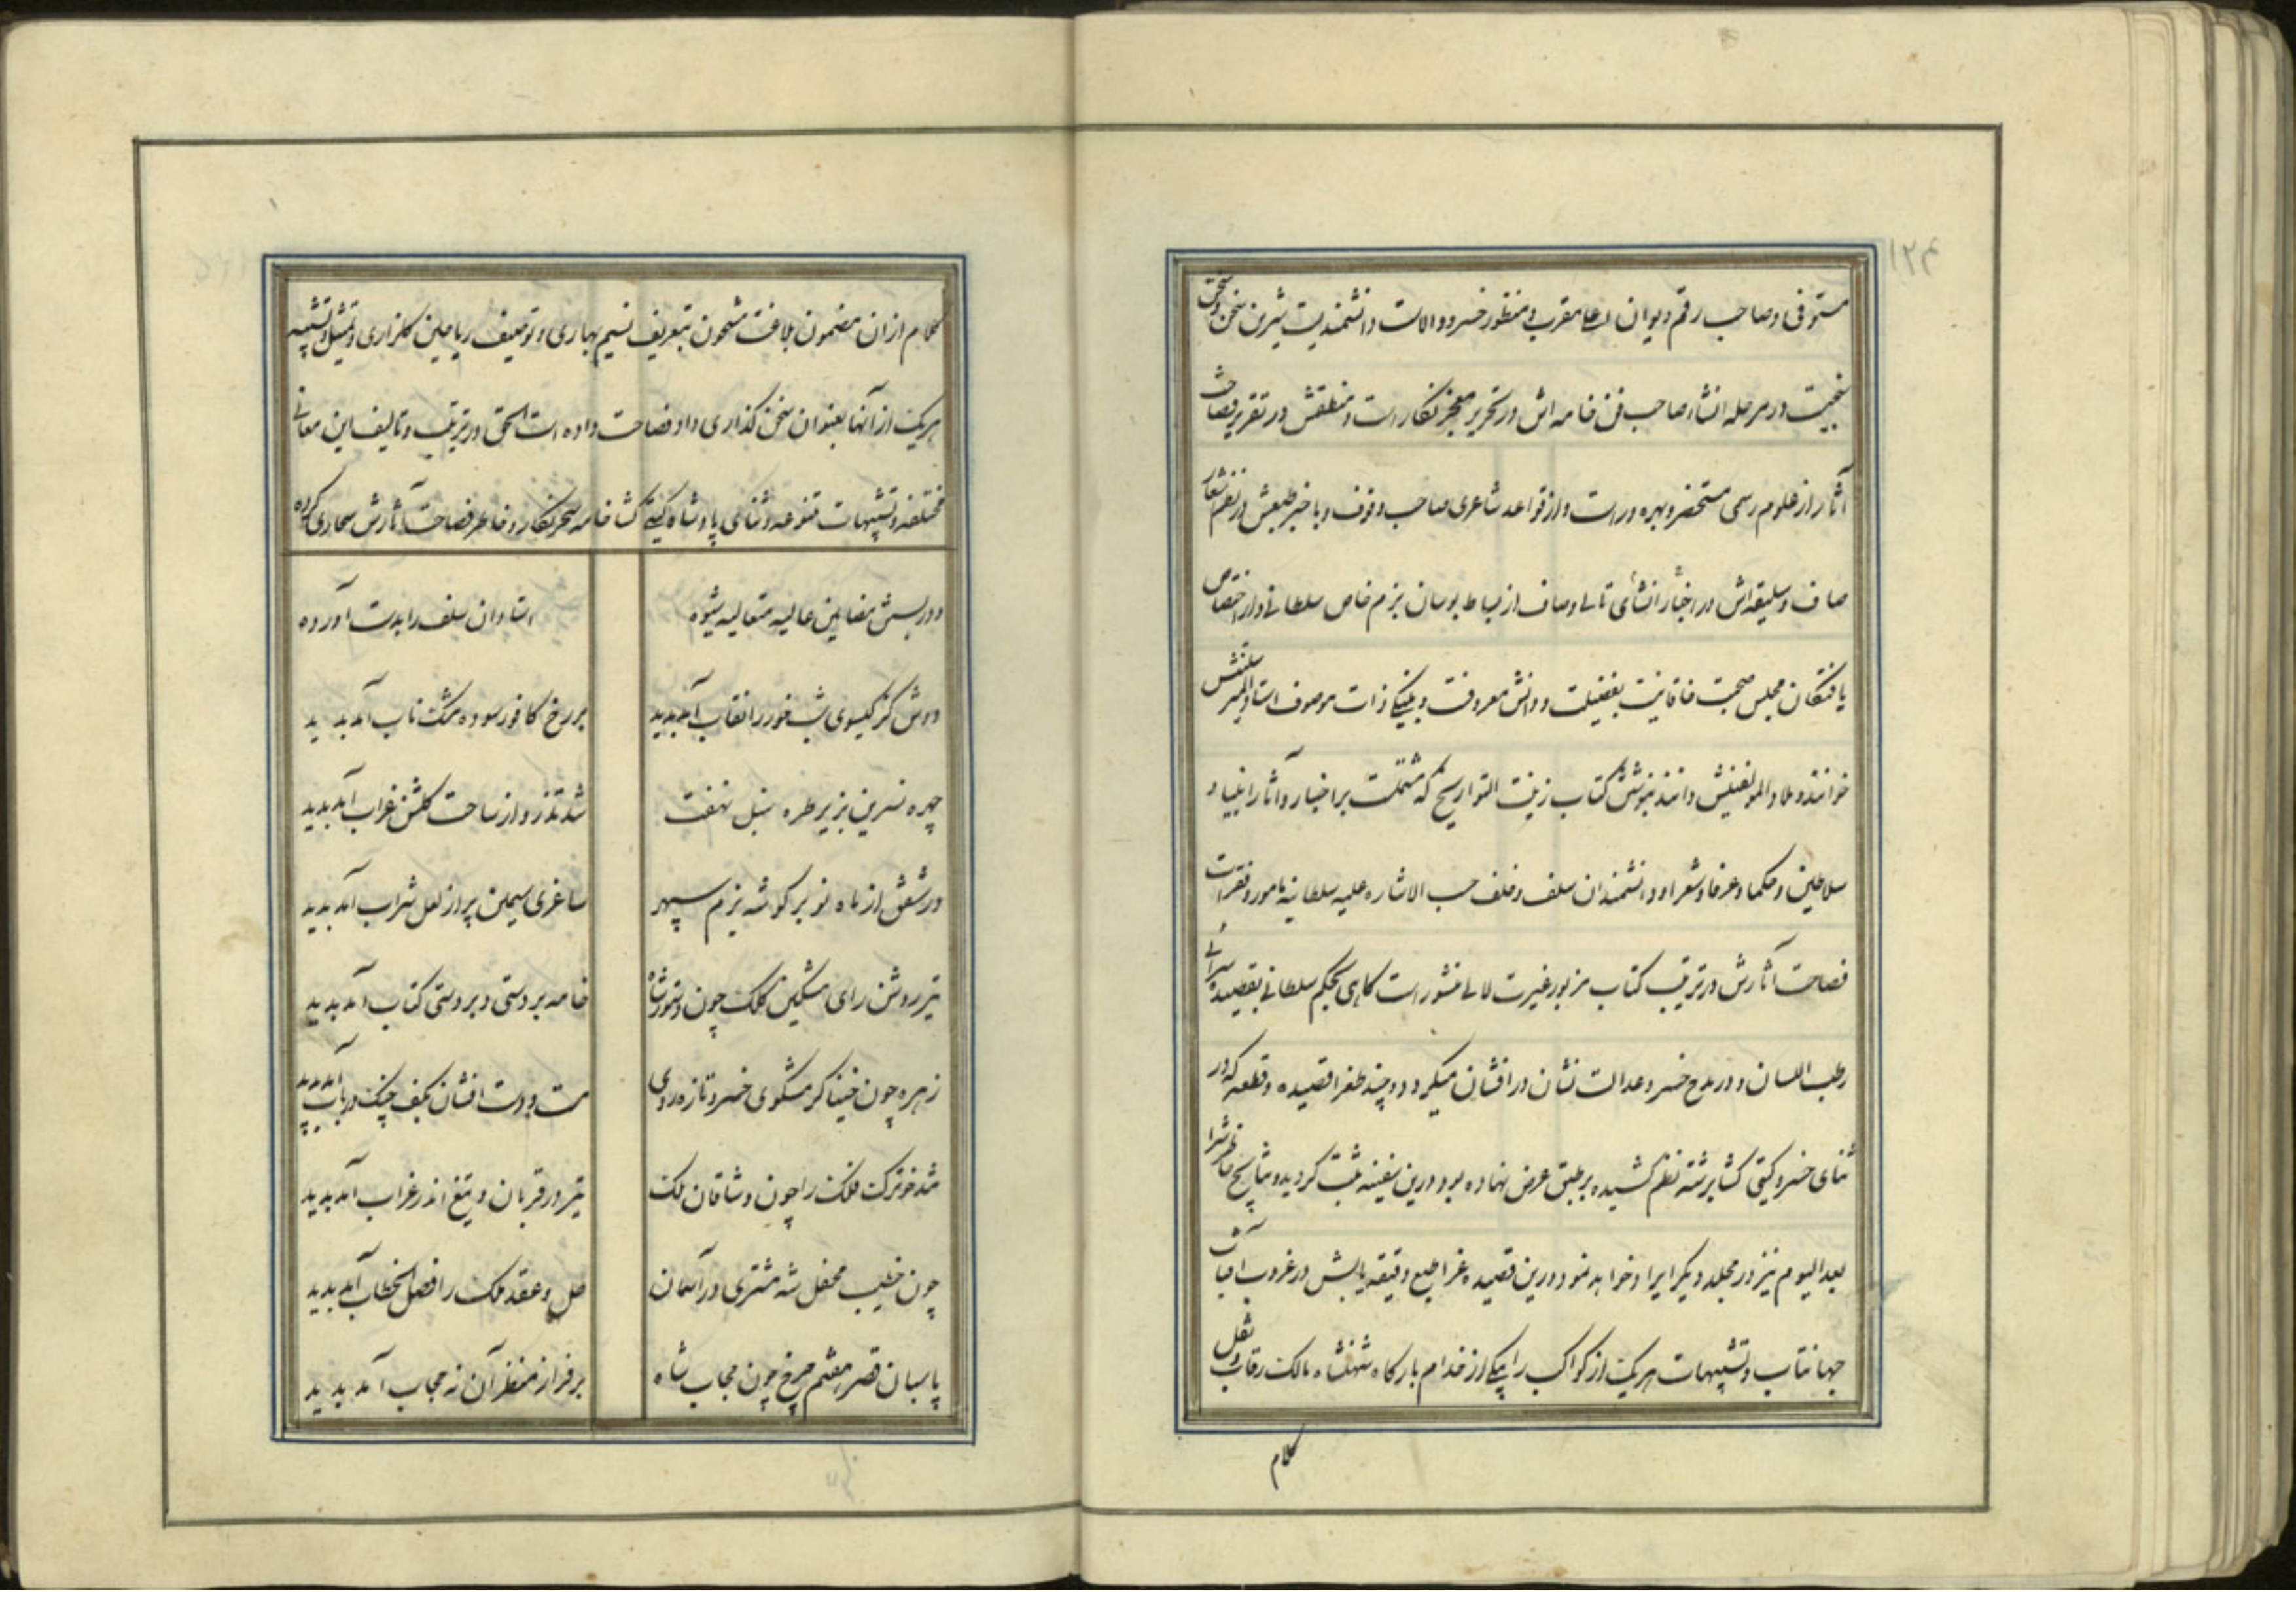 مستوفی و صاحب رقم دیوان اعلا مقرب و منظور خسرو والاست دانشمندیست شیرین سخن و سخن
سنجیست در مرحله انشاء صاحب فن خامه اش در تحریر معجز نگار است و منطقش در تقریر فصاحت
آثار از علوم رسمی مستحضر و بهره ور است و از قواعد شاعری صاحب وقوف و با خبر طبعش در نظم اشعار
صاف و سلیقه اش در اخبار انشای تالی وصاف از بساط بوسان بزم خاص سلطانی و از اختصاص
یافتگان مجلس صحبت خاقانیست بفضیلت و دانش معروفست و به نیکی ذات موصوف استاد المیر
خوانند و ملاء المؤلفینش دانند بنوشتن کتاب زینت التواریخ که مشتملست بر اخبار و آثار انبیاء و
سلاطین و حکما و عرفا و شعرا و دانشمندان سلف و خلف حسب الاشاره علیه سلطانیه مامور و فقرات
فصاحت آثارش در ترتیب کتاب مزبور غیرت لالی منثور است گاهی بحکم سلطانی بقصیده سرائی
رطب اللسان و در مدح خسرو عدالت نشان در افشان میگردد و چند طغرا قصیده و قطعه که در
ثنای خسرو گیتی گشا برشته نظم کشیده بر طبق عرض نهاده بود درین سفینه ثبت گردید و نتایج خاطرش را
بعد الیوم نیز در مجلد دیگر ایراد خواهد نمود درین قصیده غرا طبع دقیقه یابش در غروب آفتاب
جهانتاب و تشبیهات هر یک از کواکب را به یکی از خدام بارگاه شهنشاه مالک رقاب و نقل
کلام
کلام از ان مضمون بلاغت مشحون بتعریف نسیم بهاری و توصیف ریاحین گلزاری و تمثیل و تشبیه
هر یک از آنها بعنوان سخن گذاری داد فصاحت داده است الحق در ترتیب و تالیف این معانی
مختلفه و تشبیهات متنوعه و ثنای پادشاه گیتی گشا خامه سحر نگار و خاطر فصاحت آثارش سحاری کرده
و در بستن مضامین عالیه متعالیه شیوه استادان سلف را بدست آورده
دوش کز گیسوی شب خور را نقاب آمد پدید بر رخ کافور سوده مشک ناب آمد پدید
چهره نسرین بزیر طره سنبل نهفت شد تذرو از ساحت گلشن غراب آمد پدید
در شفق از ماه نو بر گوشه بزم سپهر ساغری سیمین پر از لعل شراب آمد پدید
تیر روشن رای مشکین کلک چون دستور شاه خامه بر دستی و بر دستی کتاب آمد پدید
زهره چون خنیاگر مشکوی خسرو تازه روی مست و دست افشان بکف چنگ و رباب آمد پدید
شد خور ترک فلک را چون وشاقان ملک تیر در قربان و تیغ اندر غراب آمد پدید
چون خطیب محفل شه مشتری در آسمان حل و عقد ملک را فصل الخطاب آمد پدید
پاسبان قصر هفتم چرخ چون حجاب شاه بر فراز منظر آن نه حجاب آمد پدید